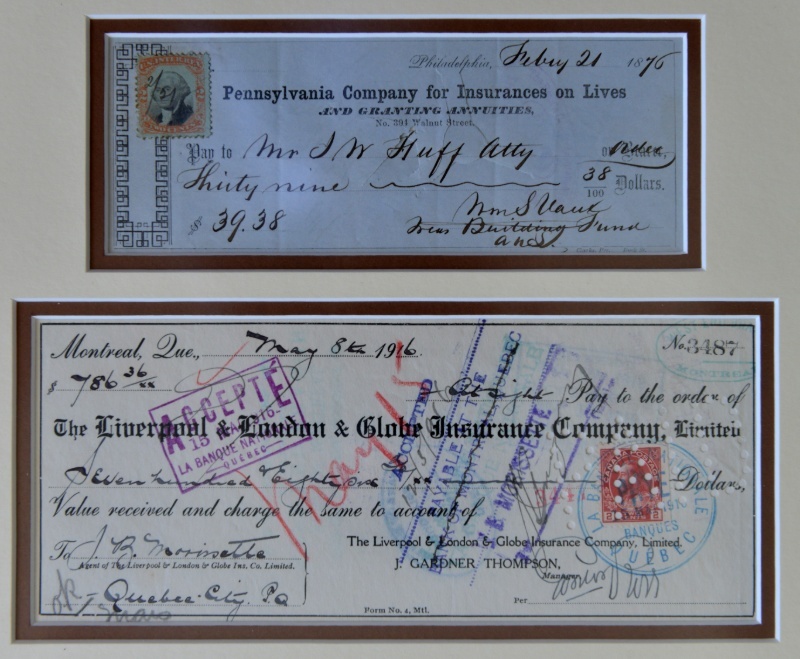 Philadelphia, Feby 21 1876
U.S. INTER. REV.
2/21
TWO CENTS
Pennsylvania Company for Insurances on Lives
AND GRANTING ANNUITIES,
No. 304 Walnut Street.
Pay to Mr J W Huff Atty or order
Thirty nine 38/100 Dollars.
39.38
Wm S Vaux
Treas Building Fund
ANS.
Montreal, Que., May 8th 1916.
No. 3487
MONTREAL
$ 786 36/xx
At sight Pay to the order of
ACCEPTÉ
15 MAI 1916
LA BANQUE NATIONALE
QUÉBEC
May 15
ACCEPTED
PAYABLE AT THE
QUEBEC
J B MORISSETTE
The Liverpool & London & Globe Insurance Company, Limited
Seven hundred & Eighty six Dollars,
Value received and charge the same to account of
LA BANQUE NATIONALE
QUÉBEC
The Liverpool & London & Globe Insurance Company, Limited.
To J. B. Morissette
Agent of The Liverpool & London & Globe Ins. Co. Limited.
J. GARDNER THOMPSON,
Manager
Quebec City, PQ
Per
Form No. 4, Mtl.